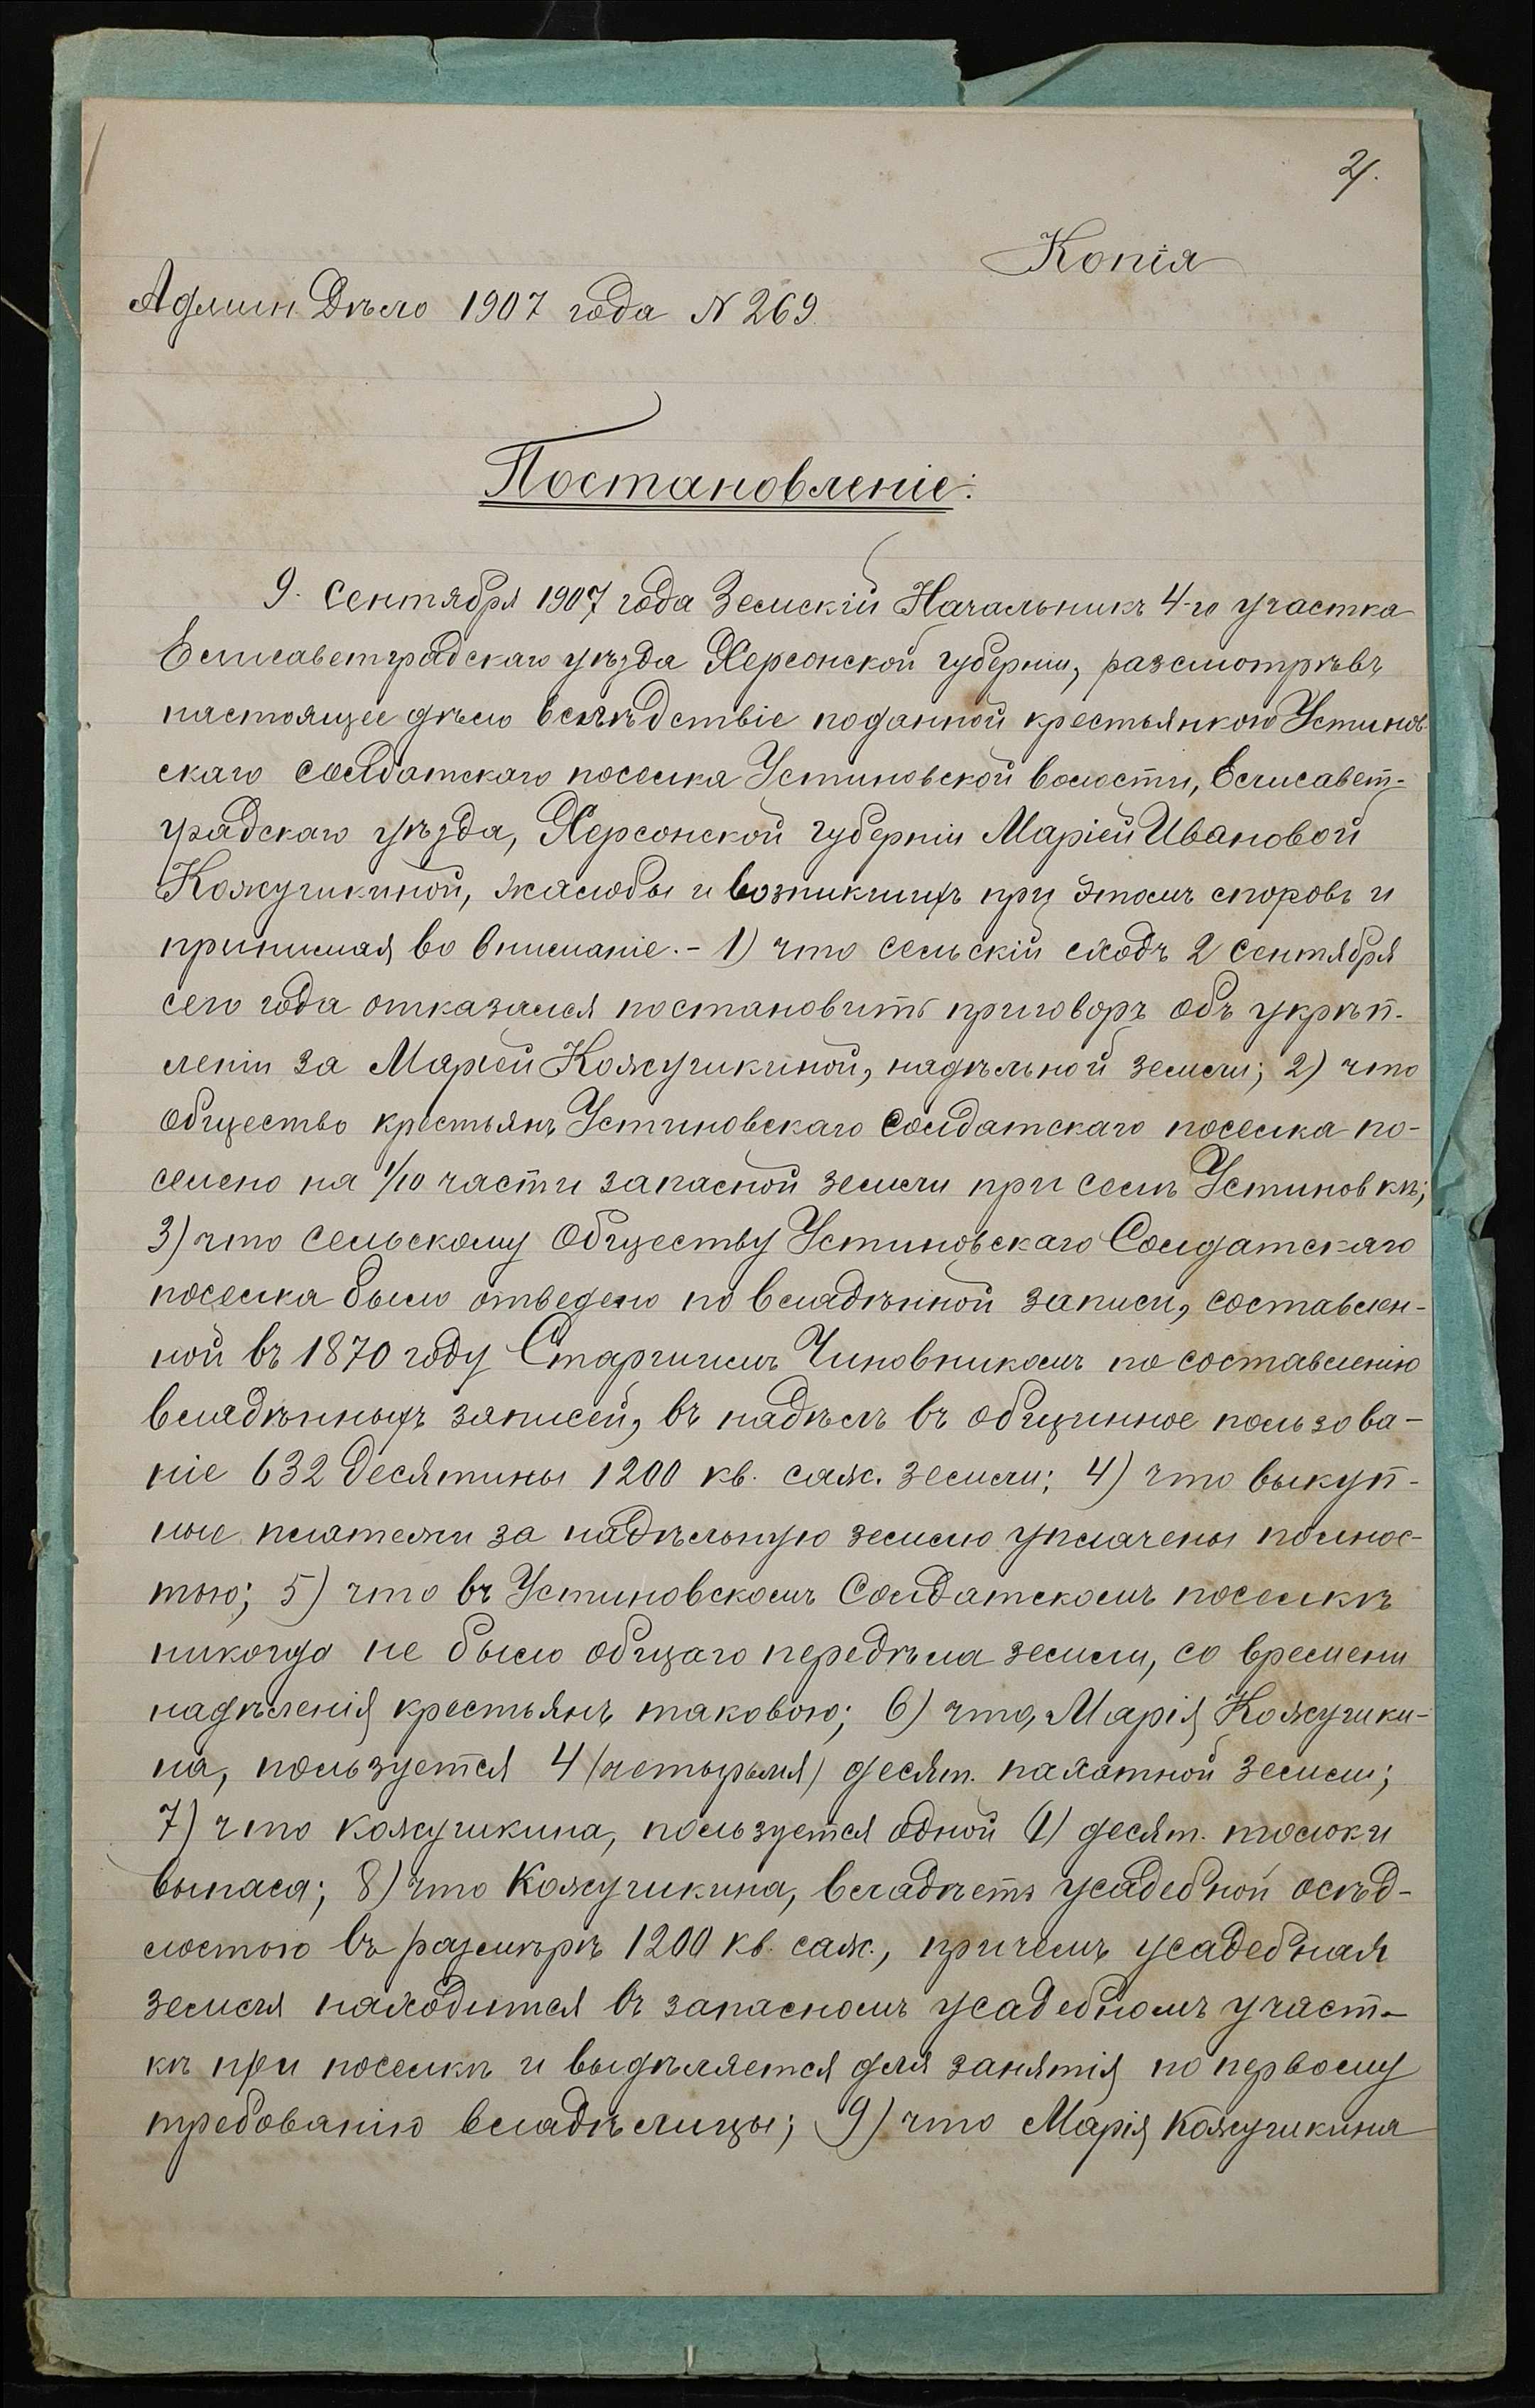 2.
Копія
Админ. Дѣло 1907 года № 269.
Постановленіе:
9. Сентября 1907 года Земскій Начальникъ 4-го участка
Елисаветградскаго уѣзда Херсонской губерніи, разсмотрѣвъ
настоящее дѣло вслѣдствіе поданной крестьянкою Устинов-
скаго солдатскаго поселка Устиновской волости, Елисавет-
градскаго уѣзда, Херсонской губерніи Маріей Ивановой
Кожушкиной, жалобы и возникшихъ при этомъ споровъ и
принимая во вниманіе.- 1) что сельскій сходъ 2 Сентября
сего года отказался постановить приговоръ объ укрѣп-
леніи за Маріей Кожушкиной, надѣльной земли; 2) что
общество крестьянъ Устиновскаго Солдатскаго поселка по-
селено на 1/10 части запасной земли при селѣ Устиновкѣ;
3) что сельскому Обществу Устиновскаго Солдатскаго
поселка было отведено по владѣнной записи, составлен-
ной въ 1870 году Старшимъ Чиновникомъ по составленію
владѣнныхъ записей, въ надѣлъ въ общинное пользова-
ніе 632 десятины 1200 кв. саж. земли; 4) что выкуп-
ные платежи за надѣльную землю уплачены полнос-
тью; 5) что въ Устиновскомъ Солдатскомъ поселкѣ
никогда не было общаго передѣла земли, со времени
надѣленія крестьянъ таковою; 6) что, Марія Кожушки-
на, пользуется 4 (четырьмя) десят. пахатной земли;
7) что Кожушкина, пользуется одной (1) десят. толоки
выпаса; 8) что Кожушкина, владѣетъ усадебной осѣд-
лостью въ размѣрѣ 1200 кв. саж., причемъ усадебная
земля находится въ запасномъ усадебномъ участ-
кѣ при поселкѣ и выдѣляется для занятія по первому
требованію владѣлицы; 9) что Марія Кожушкина